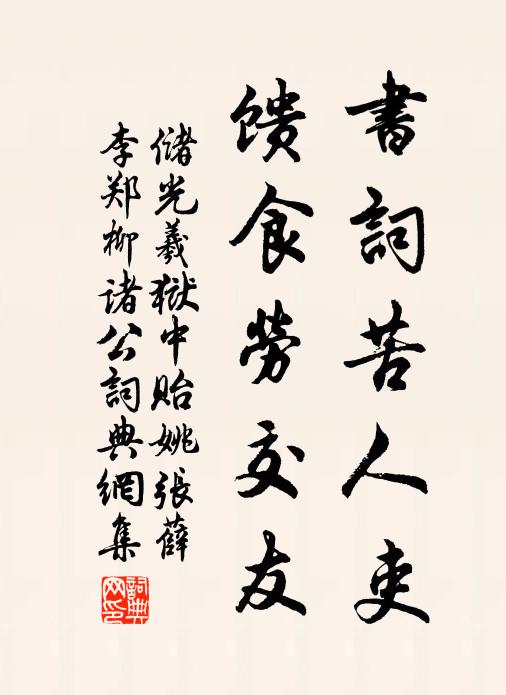 書詞苦人吏
馈食勞交友
儲光羲獄中貽姚張薛
李郑柳诸公詞典網集
詞典網印